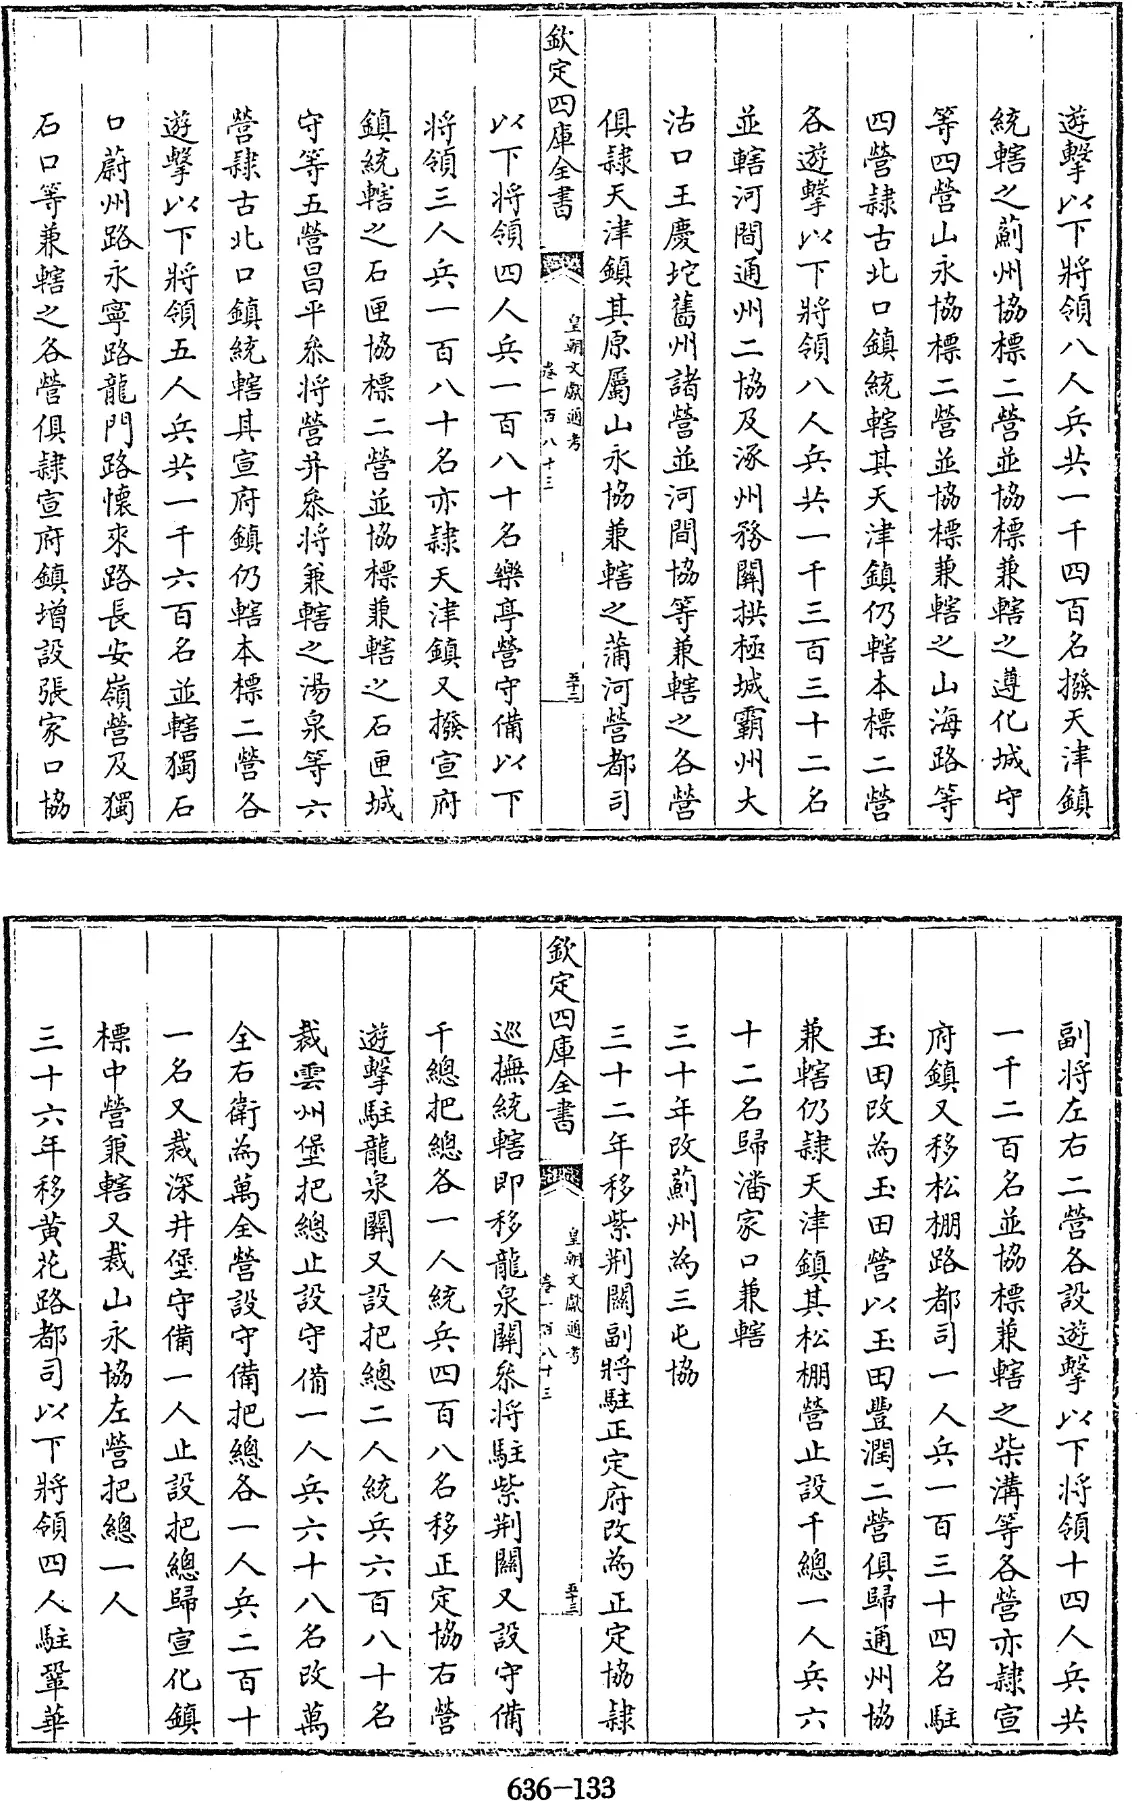 遊擊以下將領八人兵共一千四百名撥天津鎮
統轄之薊州協標二營並協標兼轄之遵化城守
等四營山永協標二營並協標兼轄之山海路等
四營隷古北口鎮統轄其天津鎮仍轄本標二營
各遊擊以下將領八人兵共一千三百三十二名
並轄河間通州二協及涿州務關拱極城霸州大
沽口王慶坨舊州諸營並河間協等兼轄之各營
俱隷天津鎮其原屬山永協兼轄之蒲河營都司
欽定四庫全書
皇朝文獻通考
卷一百八十三
五十二
以下將領四人兵一百八十名樂亭營守備以下
將領三人兵一百八十名亦隷天津鎮又撥宣府
鎮統轄之石匣協標二營並協標兼轄之石匣城
守等五營昌平叅將營并叅將兼轄之湯泉等六
營隷古北口鎮統轄其宣府鎮仍轄本標二營各
遊擊以下將領五人兵共一千六百名並轄獨石
口蔚州路永寧路龍門路懷來路長安嶺營及獨
石口等兼轄之各營俱隷宣府鎮增設張家口協
副將左右二營各設遊擊以下將領十四人兵共
一千二百名並協標兼轄之柴溝等各營亦隷宣
府鎮又移松棚路都司一人兵一百三十四名駐
玉田改為玉田營以玉田豐潤二營俱歸通州協
兼轄仍隷天津鎮其松棚營止設千總一人兵六
十二名歸潘家口兼轄
三十年改薊州為三屯協
三十二年移紫荆關副將駐正定府改為正定協隷
欽定四庫全書
皇朝文獻通考
卷一百八十三
五十三
巡撫統轄即移龍泉關叅將駐紫荆關又設守備
千總把總各一人統兵四百八名移正定協右營
遊擊駐龍泉關又設把總二人統兵六百八十名
裁雲州堡把總止設守備一人兵六十八名改萬
全右衛為萬全營設守備把總各一人兵二百十
一名又裁深井堡守備一人止設把總歸宣化鎮
標中營兼轄又裁山永協左營把總一人
三十六年移黃花路都司以下將領四人駐鞏華
636-133